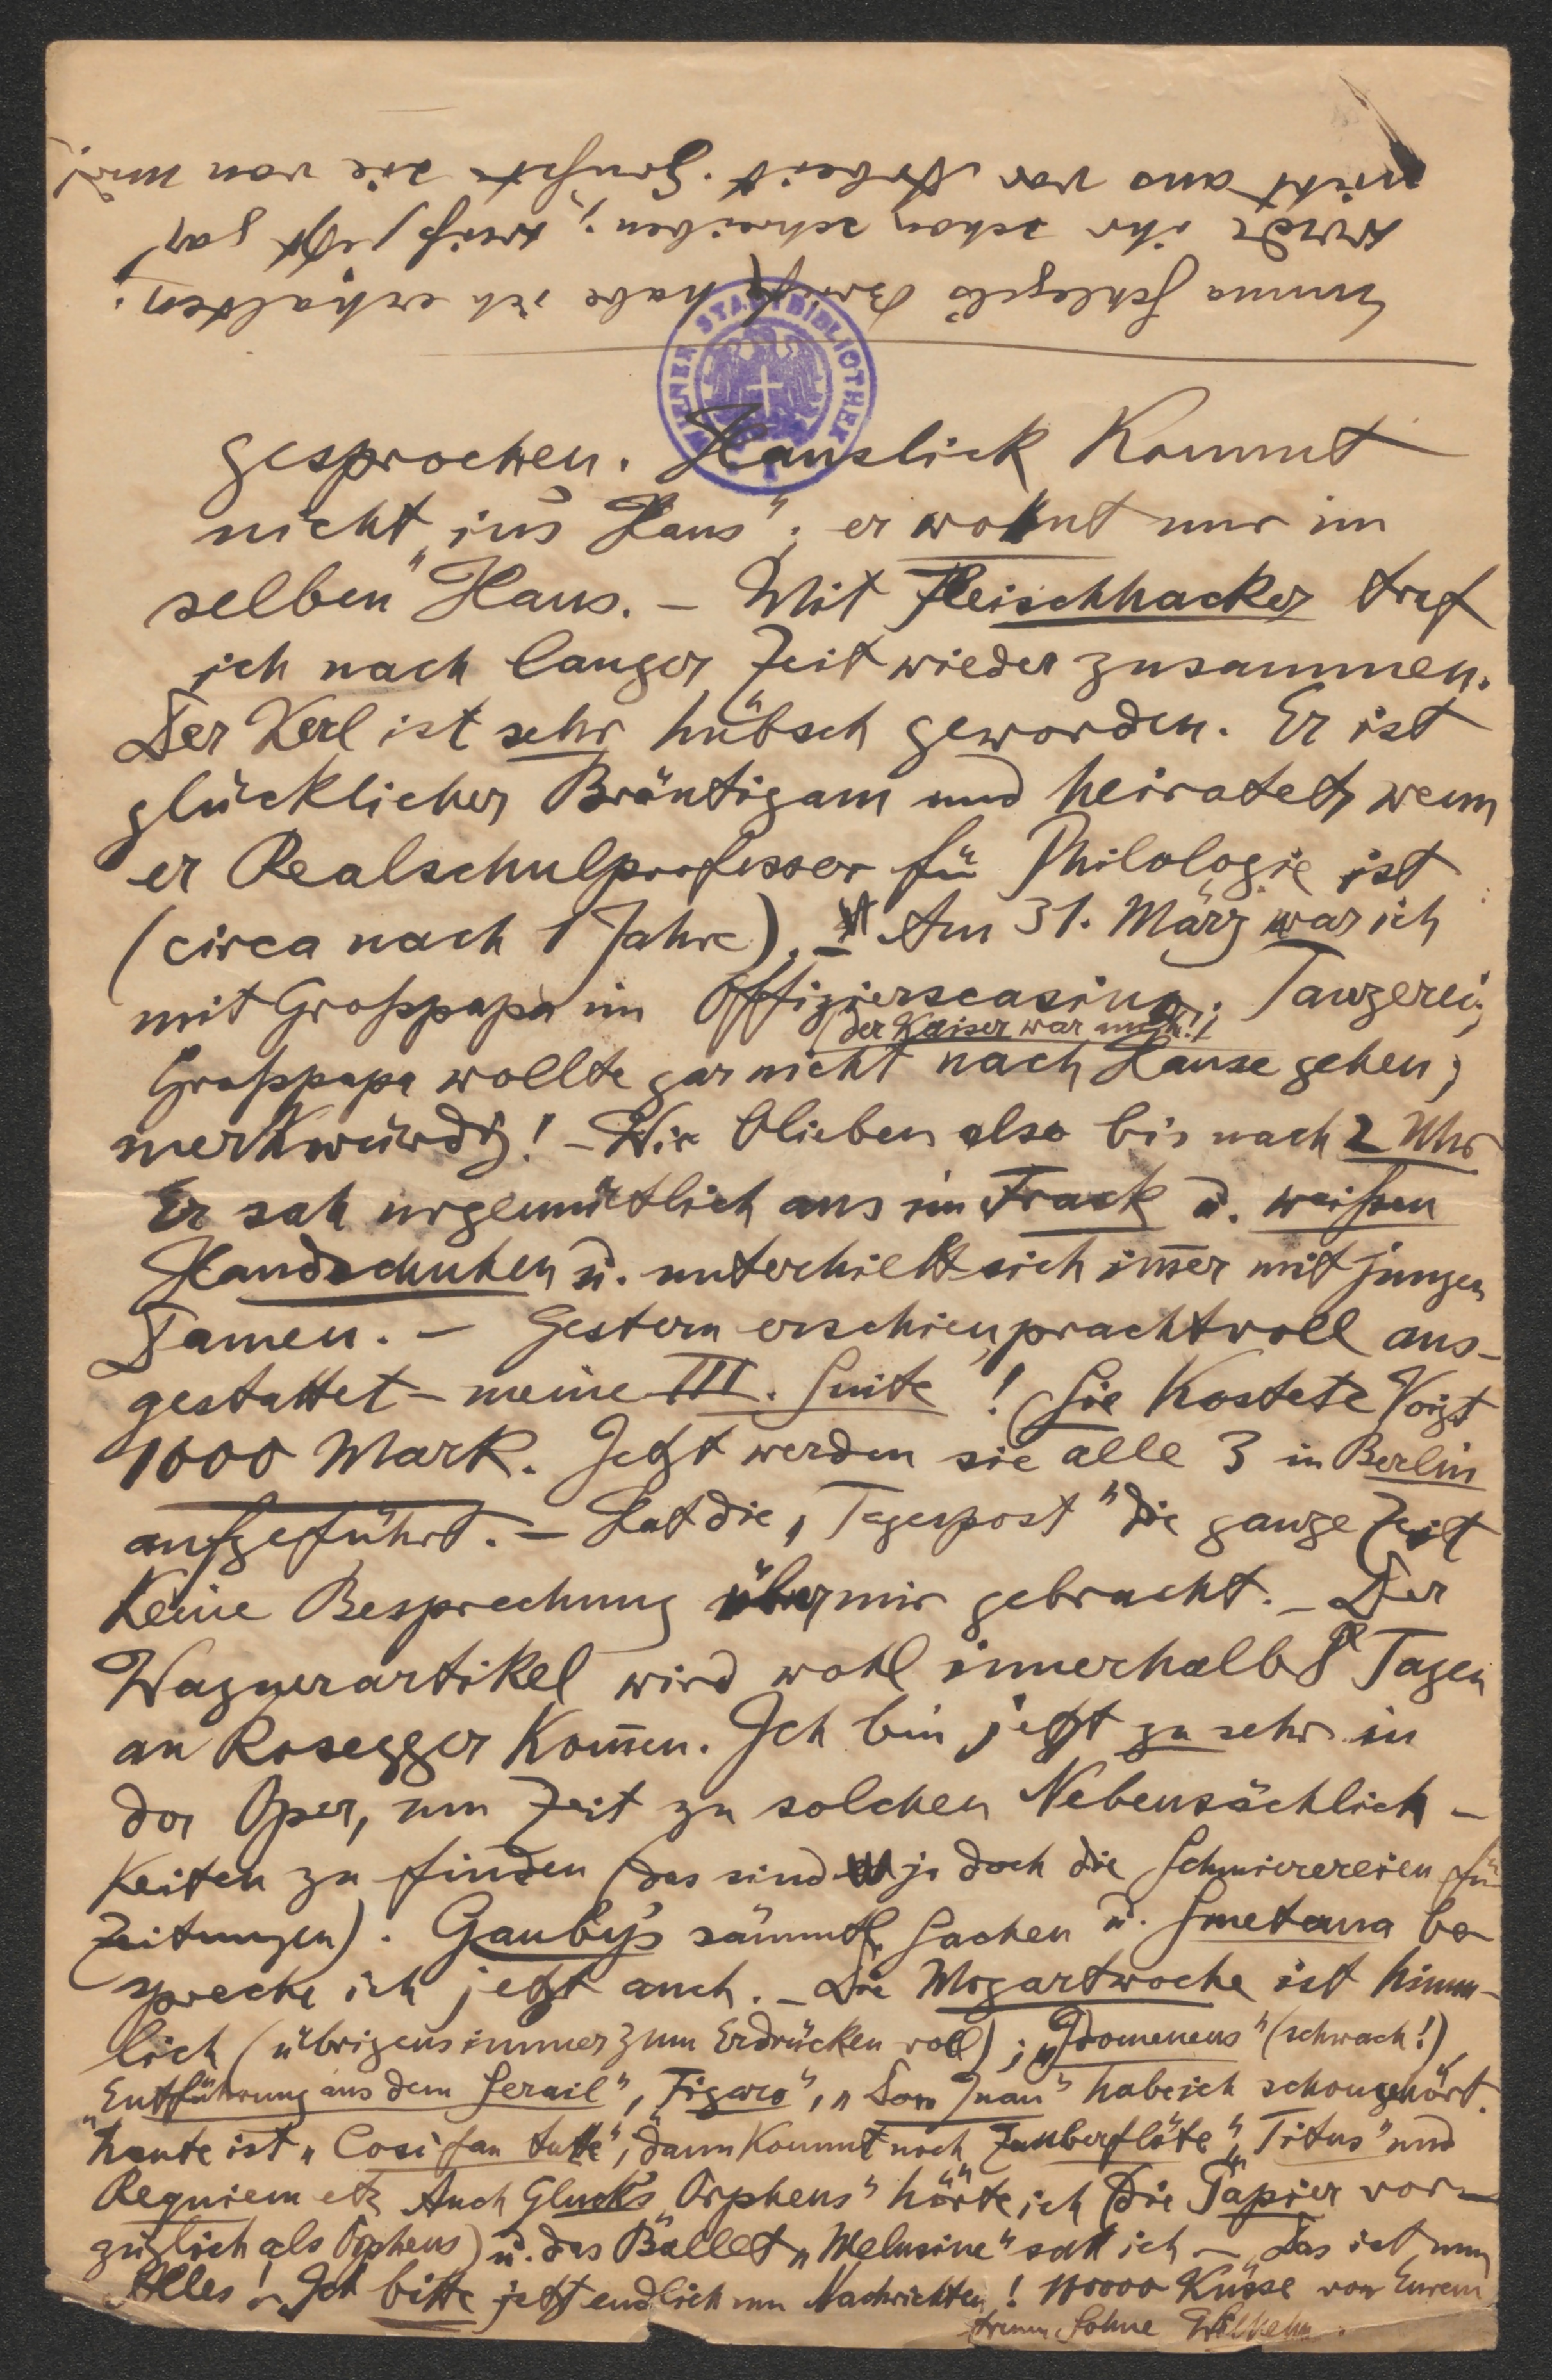 Emma Schlegels Brief habe ich erhalten;
werde ihr schon schreiben; weiß jetzt gar
nicht aus vor Arbeit. Grüßt sie von mir!
WIENER STADTBIBLIOTHEK
gesprochen. Hanslick kommt
nicht „ins Haus"; er wohnt nur im
selben Haus. – Mit Fleischhacker traf
ich nach langer Zeit wieder zusammen.
Der Kerl ist sehr hübsch geworden. Er ist
glücklicher Bräutigam und heiratet, wenn
er Realschulprofessor für Philologie ist
(circa nach 1 Jahre). – Am 31. März war ich
mit Großpapa im Offizierscasino. Tanzerei;
(der Kaiser war auch!)
Großpapa wollte gar nicht nach Hause gehen;
merkwürdig! – Wir blieben also bis nach 2 Uhr
Er sah urgemütlich aus im Frack u. weißen
Handschuhen u. unterhielt sich im̅er mit jungen
Damen. – Gestern erschien prachtvoll aus-
gestattet – meine III. Suite! (Sie kostete Voigt
1000 Mark. Jetzt werden sie alle 3 in Berlin
aufgeführt. – Hat die „Tagespost" die ganze Zeit
keine Besprechung über mir gebracht. – Der
Wagnerartikel wird wohl innerhalb 8 Tagen
an Rosegger kom̅en. Ich bin jetzt zu sehr in
der Oper, um Zeit zu solchen Nebensächlich-
keiten zu finden (das sind ja doch die Schmierereien für
Zeitungen). Gauby's sämmtl. Sachen u. Smetana be-
spreche ich jetzt auch. – Die Mozartwoche ist himm-
lich (übrigens immer zum Erdrücken voll); „Idomeneus" (schwach!),
„Entführung aus dem Serail", „Figaro", „Don Juan" habe ich schon gehört.
Heute ist „Cosi fan tutte", dann kommt noch „Zauberflöte", „Titus" und
Requiem etz. Auch Gluck's „Orpheus" hörte ich (die Papier vor-
züglich als Orpheus) u. das Ballet „Melusine" sah ich – Das ist nun
Alles! – Ich bitte jetzt endlich um Nachrichten! 10000 Küsse von Eurem
treuen Sohne Wilhelm.